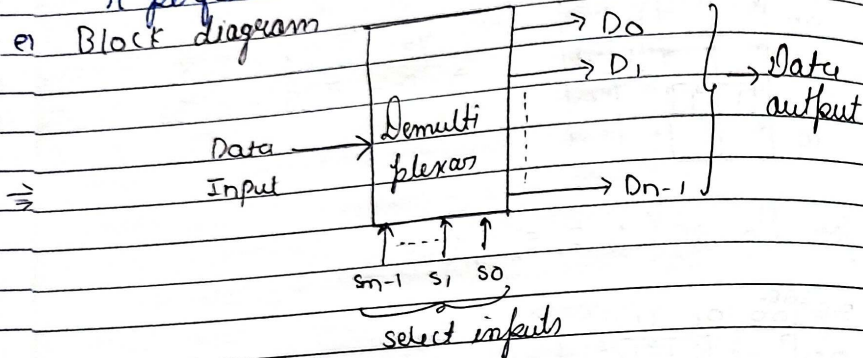 e) Block diagram
Data
Input
Demulti
plexar
D0
D1
Dn-1
Data
output
Sn-1 S1 S0
select inputs